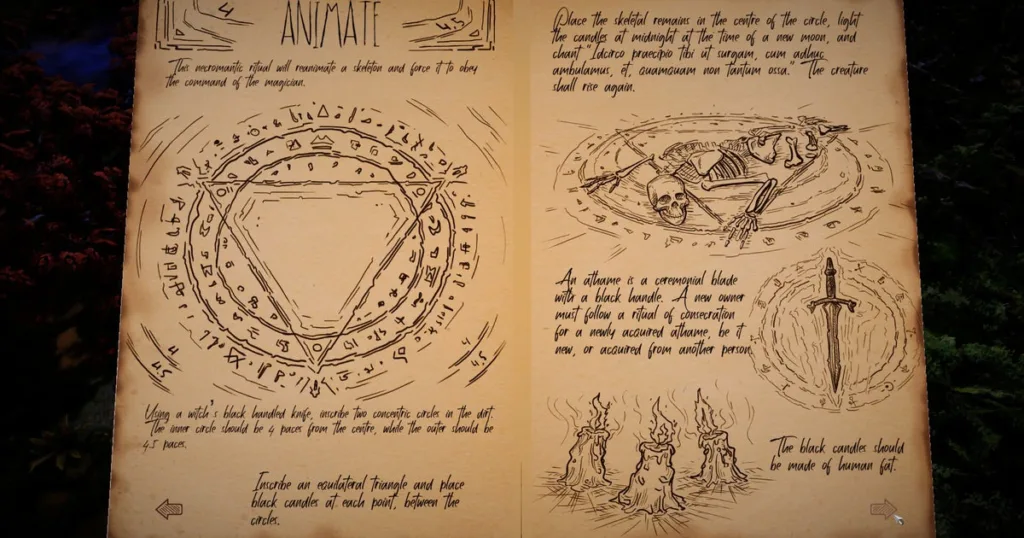 4
ANIMATE
4.5
This necromantic ritual will reanimate a skeleton and force it to obey
the command of the magician.
4
4.5
4
4.5
Using a witch's black handled knife, inscribe two concentric circles in the dirt.
The inner circle should be 4 paces from the centre, while the outer should be
4.5 paces.
Inscribe an equilateral triangle and place
black candles at each point, between the
circles.
Place the skeletal remains in the centre of the circle, light
the candles at midnight at the time of a new moon, and
chant "Idcirco praecipio tibi ut surgam, cum adhuc
ambulamus, et, quamquam non tantum ossa." The creature
shall rise again.
An athame is a ceremonial blade
with a black handle. A new owner
must follow a ritual of consecration
for a newly acquired athame, be it
new, or acquired from another person.
The black candles should
be made of human fat.